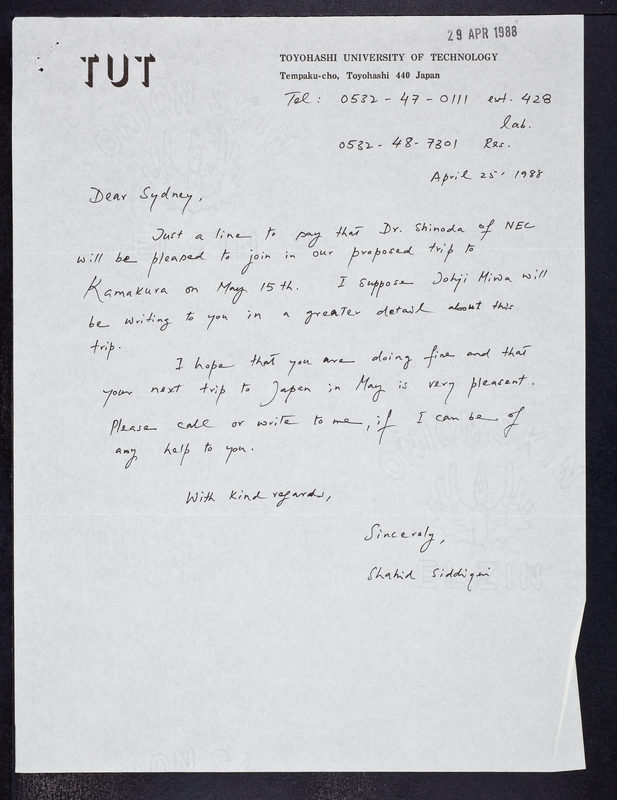 29 APR 1988
TUT
TOYOHASHI UNIVERSITY OF TECHNOLOGY
Tempaku-cho, Toyohashi 440 Japan
Tel: 0532-47-0111 ext. 428
lab.
0532-48-7301 Res.
April 25, 1988
Dear Sydney,
Just a line to say that Dr. Shinoda of NEC
will be pleased to join in our proposed trip to
Kamakura on May 15th. I suppose Johji Miwa will
be writing to you in a greater detail about this
trip.
I hope that you are doing fine and that
your next trip to Japan in May is very pleasent.
Please call or write to me, if I can be of
any help to you.
With kind regards,
Sincerely,
Shahid Siddiqui